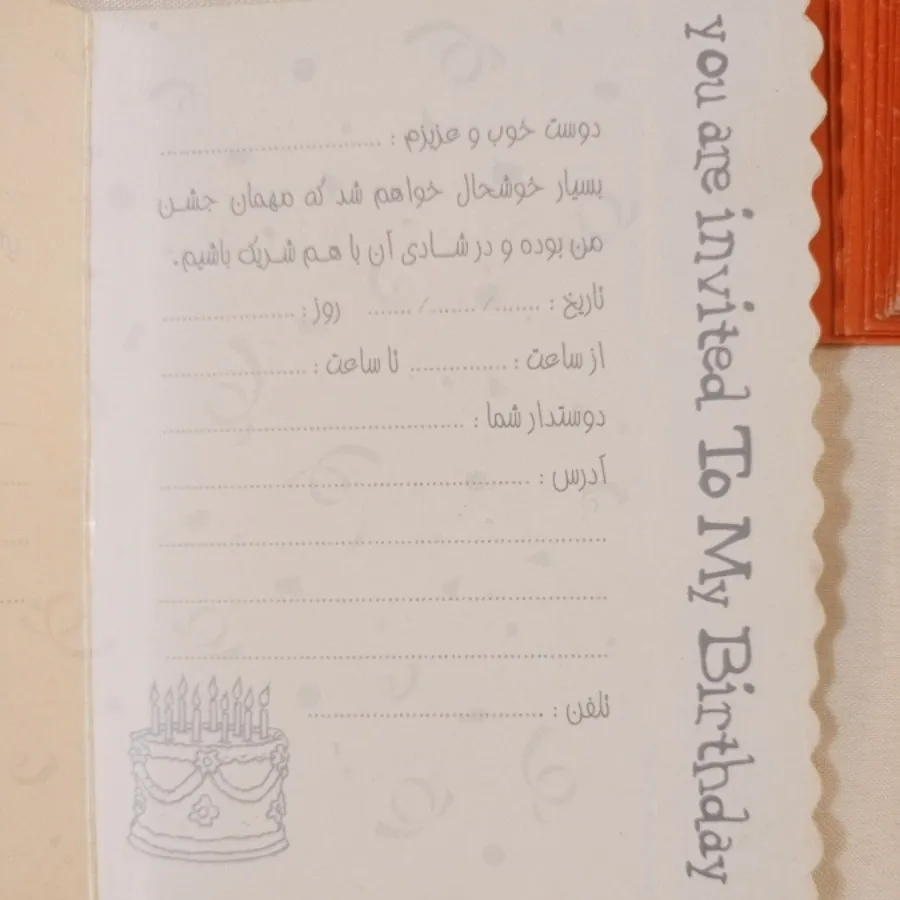 you are invited To My Birthday
دوست خوب و عزیزم : ........................................
بسیار خوشحال خواهم شد که مهمان جشن
من بوده و در شادی آن با هم شریک باشیم.
تاریخ : ......./......./....... روز : ........................
از ساعت : .................. تا ساعت : ........................
دوستدار شما : ........................................................
آدرس : ....................................................................
................................................................................
................................................................................
................................................................................
تلفن : ...........................................